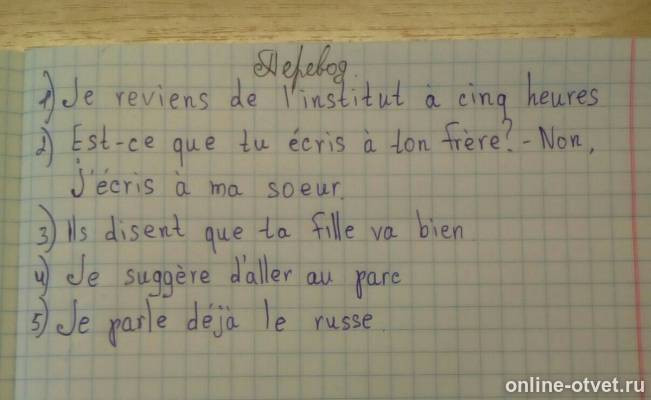 Перевод.
1) Je reviens de l'institut à cinq heures
2) Est-ce que tu écris à ton frère? - Non,
j'écris à ma soeur.
3) Ils disent que ta fille va bien
4) Je suggère d'aller au parc
5) Je parle déjà le russe.
online-otvet.ru